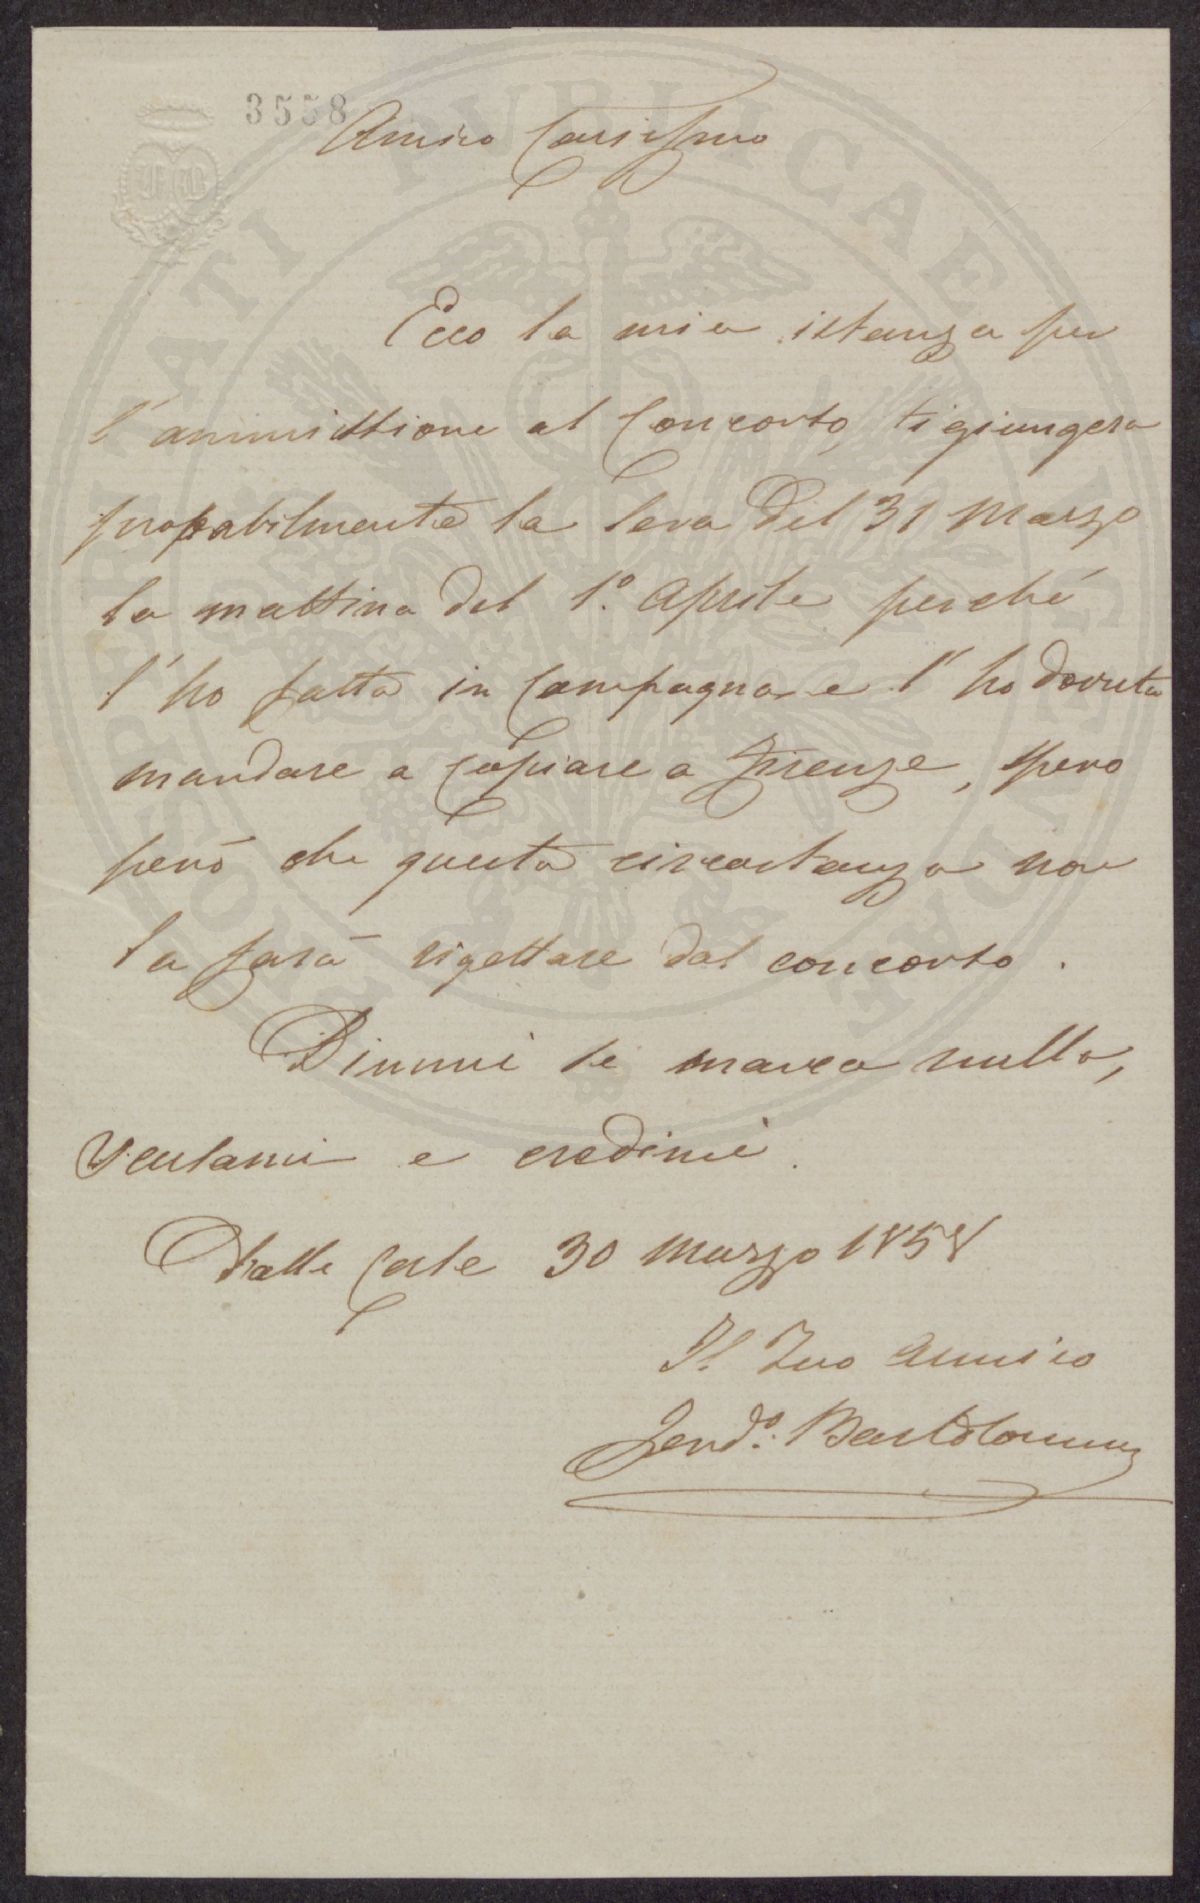 3558
Amico Carissimo
Ecco la mia istanza per
l'ammissione al Concorso, ti giungerà
probabilmente la sera del 31 Marzo
la mattina del 1.º Aprile perché
l'ho fatta in Campagna e l'ho dovuta
mandare a Copiare a Firenze, spero
però che questa circostanza non
la farà rigettare dal concorso.
Dimmi se manca nulla,
scusami e credimi.
Dalle Case 30 Marzo 1858
Il Tuo Amico
Ferd.º Bartolommei
PROSPERITATI PUBLICAE AUGENDAE